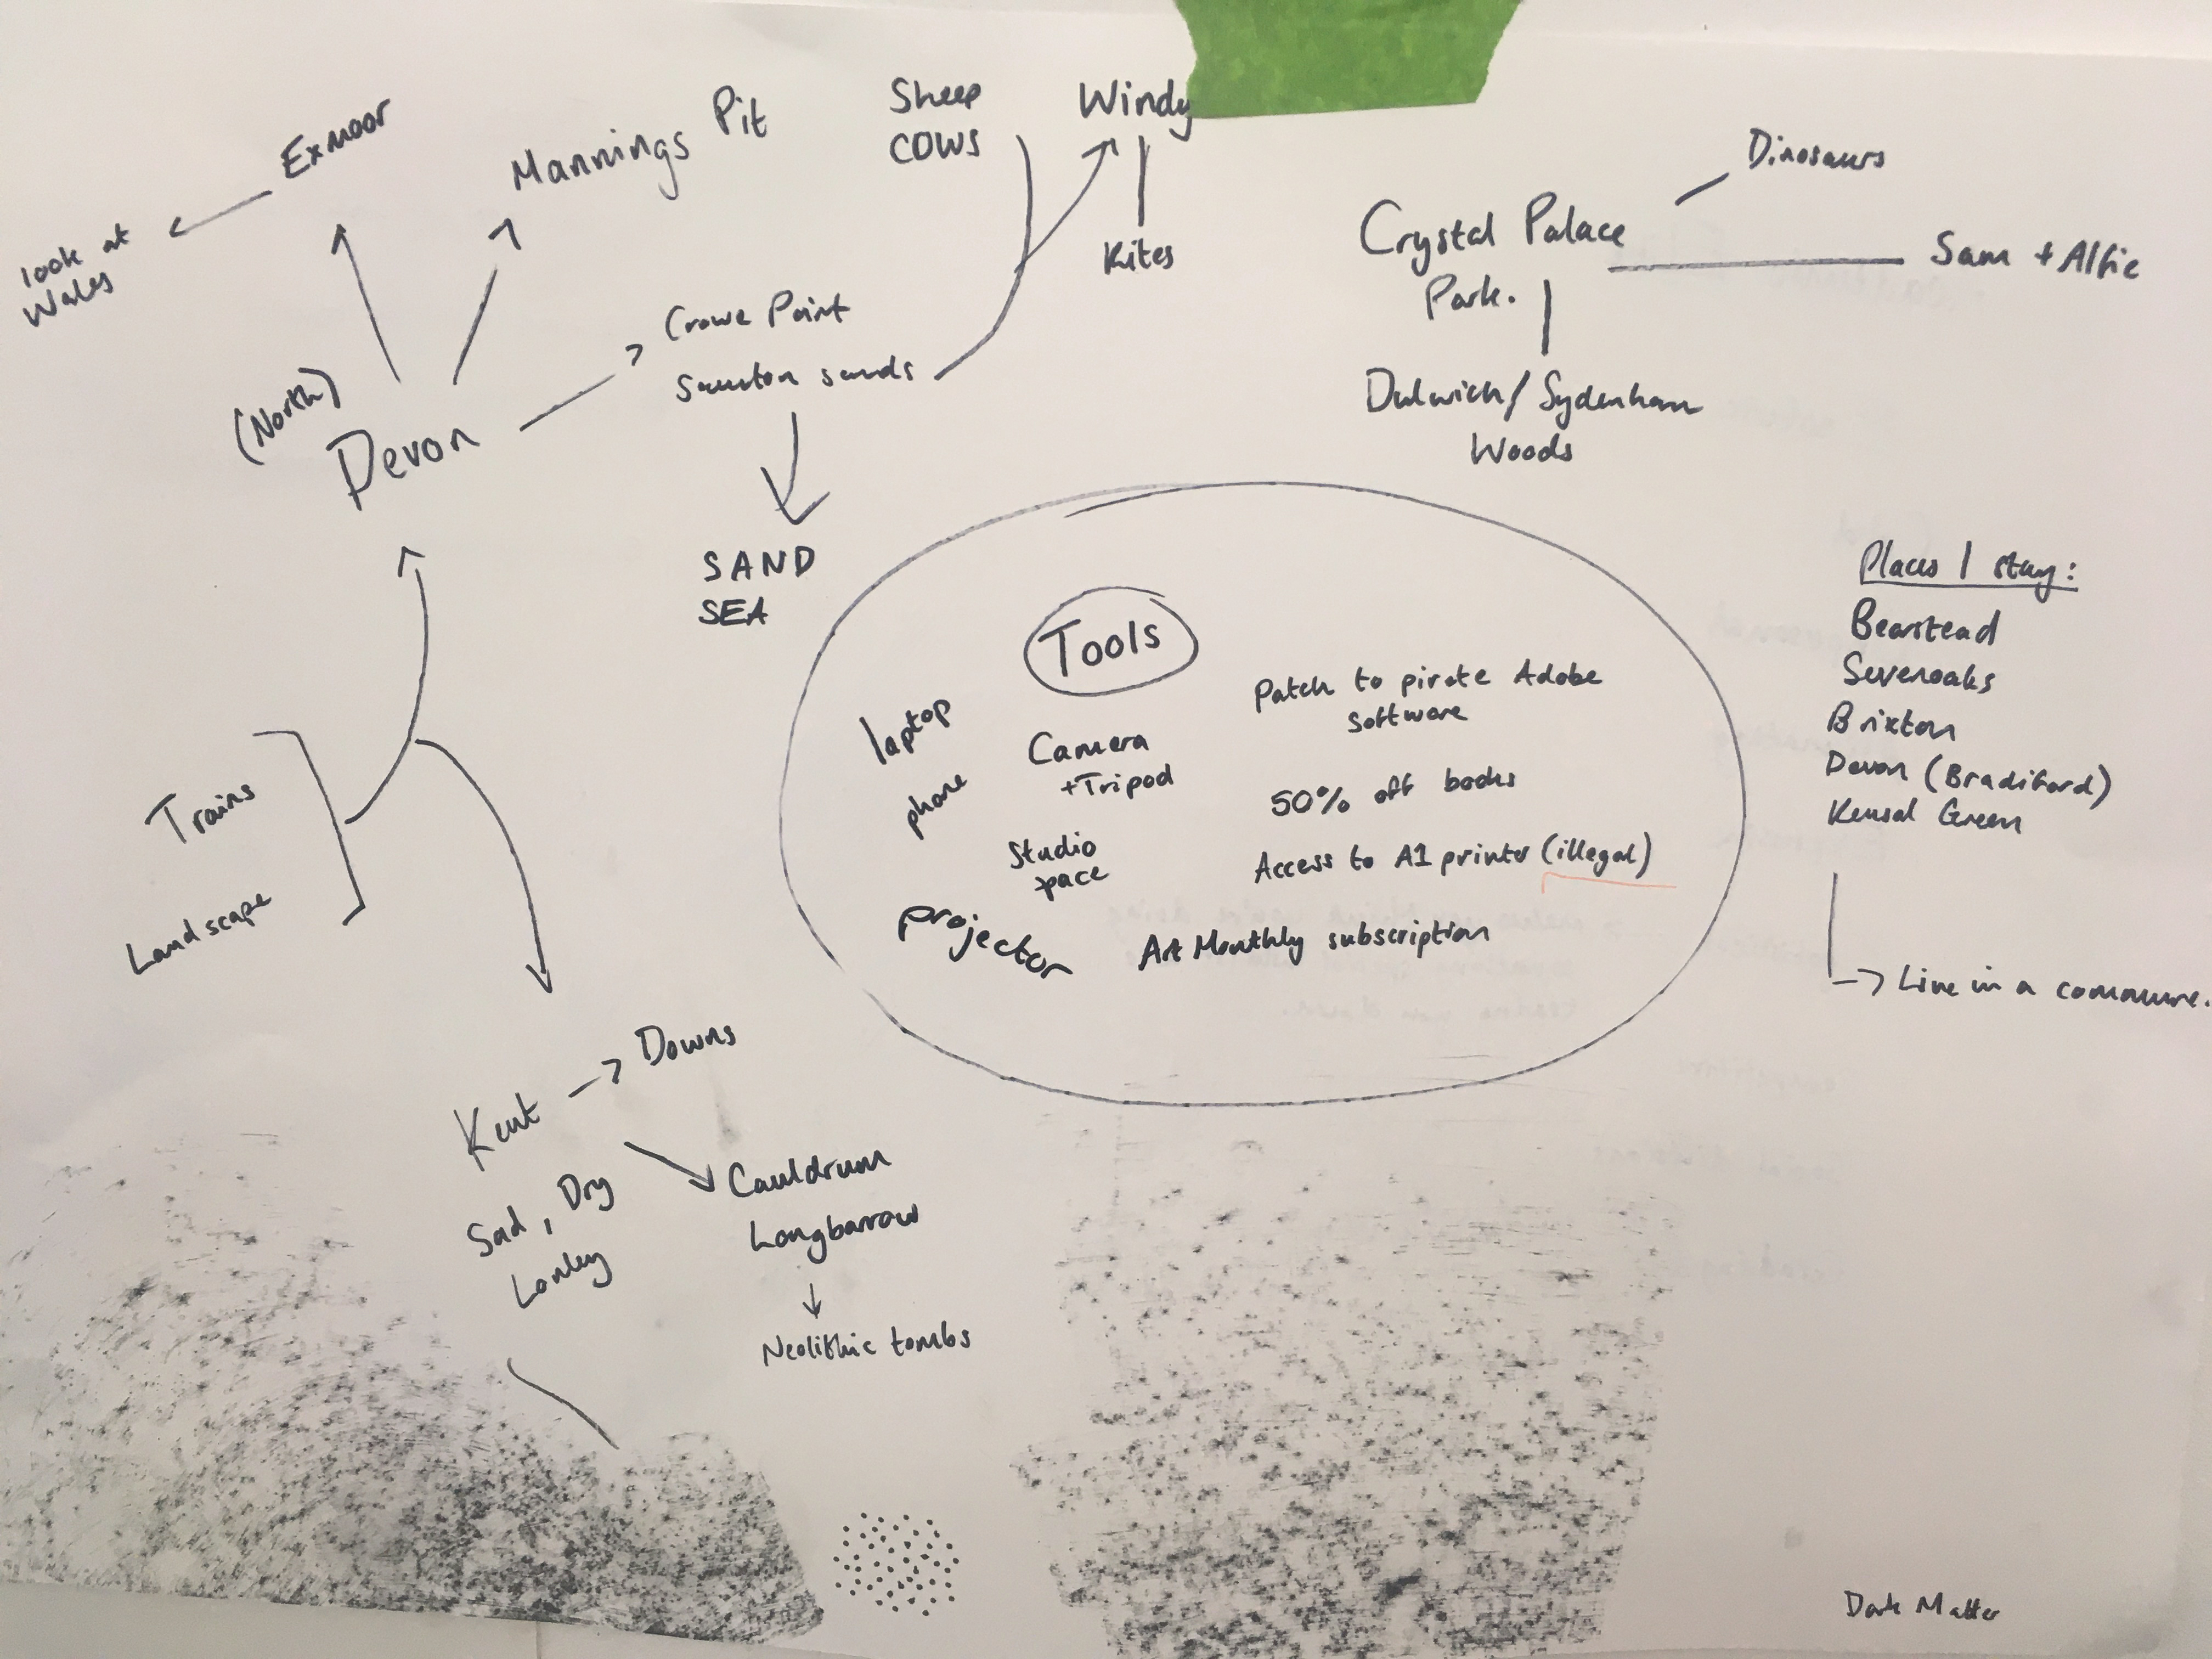 Exmoor
look at
Wales
Mannings Pit
Sheep
COWS
Windy
Kites
Crowe Point
Saunton sands
(North)
Devon
SAND
SEA
Dinosaurs
Crystal Palace
Park.
Sam + Alfie
Dulwich/Sydenham
Woods
Trains
Landscape
Tools
laptop
phone
Camera
+Tripod
Studio
space
projector
Patch to pirate Adobe
Software
50% off books
Access to A1 printer (illegal)
Art Monthly subscription
Places I stay:
Bearstead
Sevenoaks
Brixton
Devon (Bradiford)
Kensal Green
Live in a commune.
Kent
Downs
Sad, Dry
Lonley
Cauldrum
Longbarrow
Neolithic tombs
Dark Matter